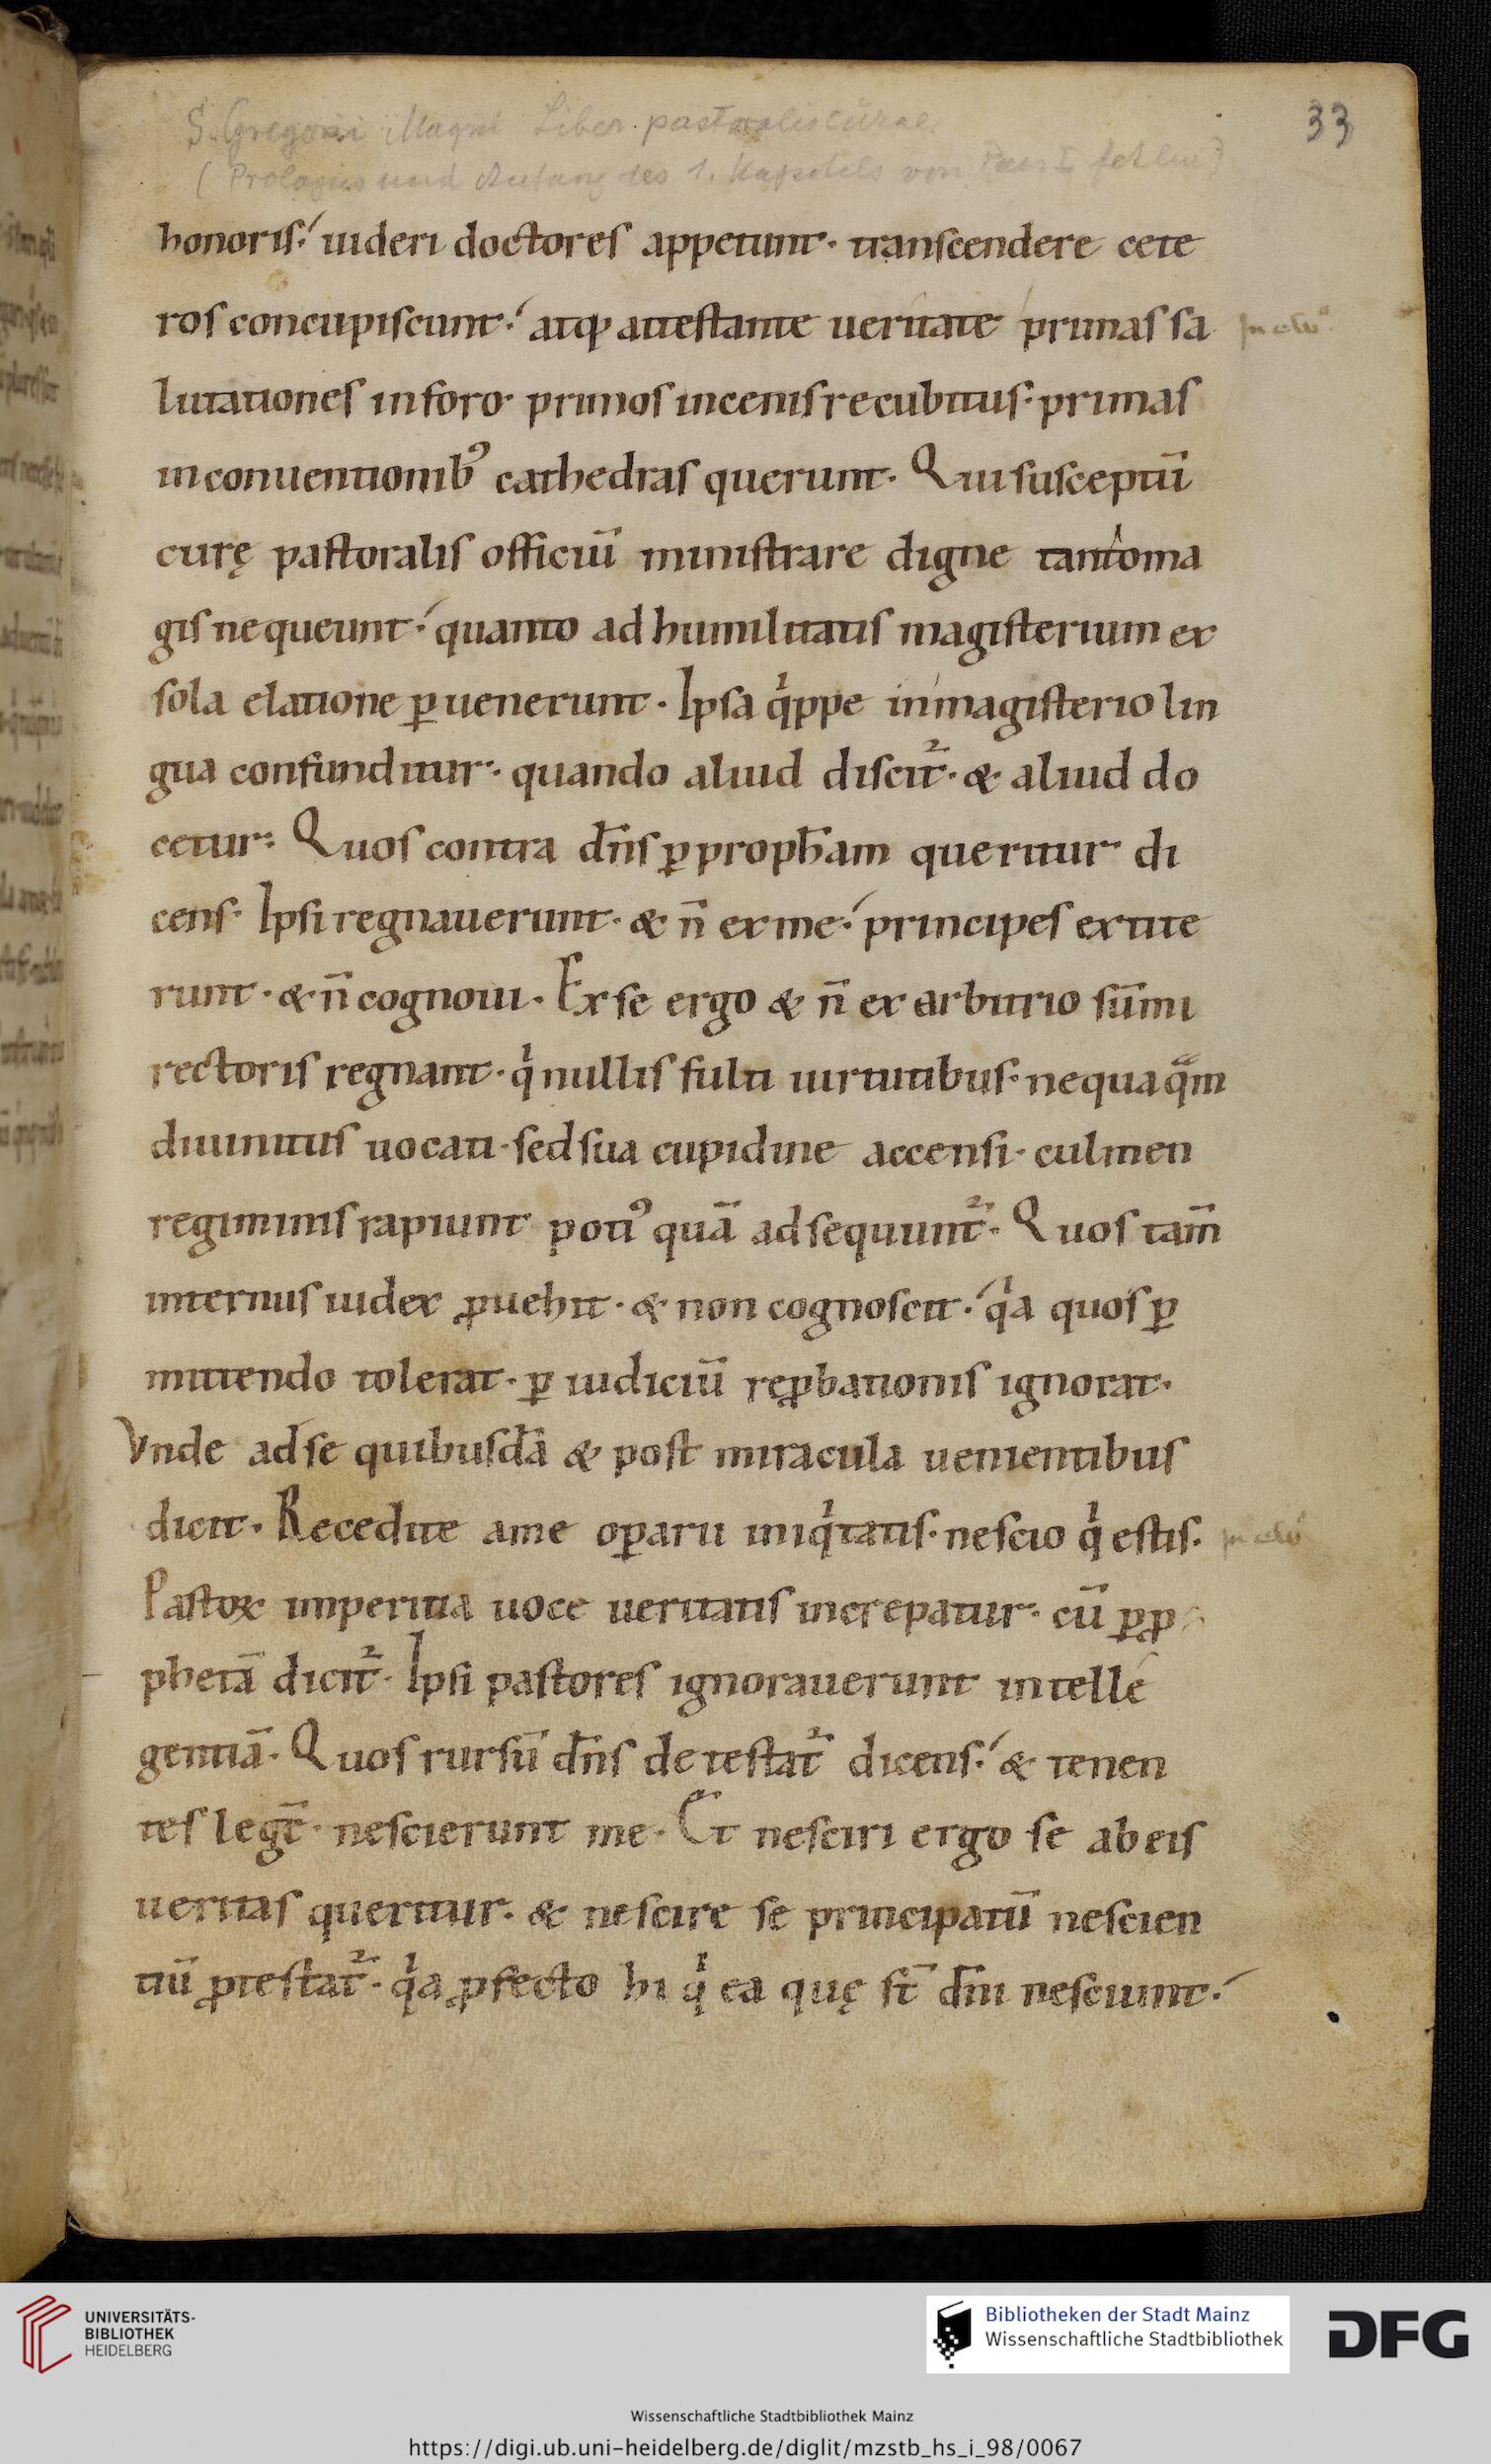 S. Gregorii Magni Liber pastoralis curae
(Prologus und Anfang des 1. Kapitels von Pars I fehlen)
33
honoris. uideri doctores appetunt. transcendere cete
ros concupiscunt. atq; attestante ueritate primas sa
lutationes in foro. primos in cenis recubitus. primas
in conuentionib' cathedras querunt. Qui susceptū
curę pastoralis officiū ministrare digne tanto ma
gis nequeunt. quanto ad humilitatis magisterium ex
sola elatione ꝑuenerunt. Ipsa qͥppe in magisterio lin
gua confunditur. quando aliud discit᷑. & aliud do
cetur. Quos contra dn̄s ꝑ proph̄am queritur di
cens. Ipsi regnauerunt. & n̄ ex me. principes extite
runt. & n̄ cognoui. Ex se ergo & n̄ ex arbitrio sūmi
rectoris regnant. qͥ nullis fulti uirtutibus. nequaqᷓm
diuinitus uocati. sed sua cupidine accensi. culmen
regiminis rapiunt poti' quā adsequunt᷑. Quos tam̄
internus iudex ꝓuehit. & non cognoscit. qͥa quos ꝑ
mittendo tolerat. ꝑ iudiciū reꝓbationis ignorat.
Vnde ad se quibusdā & post miracula uenientibus
dicit. Recedite a me oꝑarii iniqͥtatis. nescio qͥ estis.
Pastoꝝ imperitia uoce ueritatis increpatur. cū ꝑ ꝓ
phetā dicit᷑. Ipsi pastores ignorauerunt intelle
gentiā. Quos rursū dn̄s detestat᷑ dicens. & tenen
tes legē. nescierunt me. Et nesciri ergo se ab eis
ueritas queritur. & nescire se principatū nescien
tiū ꝓtestat᷑. qͥa ꝓfecto hi qͥ ea quę st̄ dn̄i nesciunt.
UNIVERSITÄTS-
BIBLIOTHEK
HEIDELBERG
Bibliotheken der Stadt Mainz
Wissenschaftliche Stadtbibliothek
DFG
Wissenschaftliche Stadtbibliothek Mainz
https://digi.ub.uni-heidelberg.de/diglit/mzstb_hs_i_98/0067